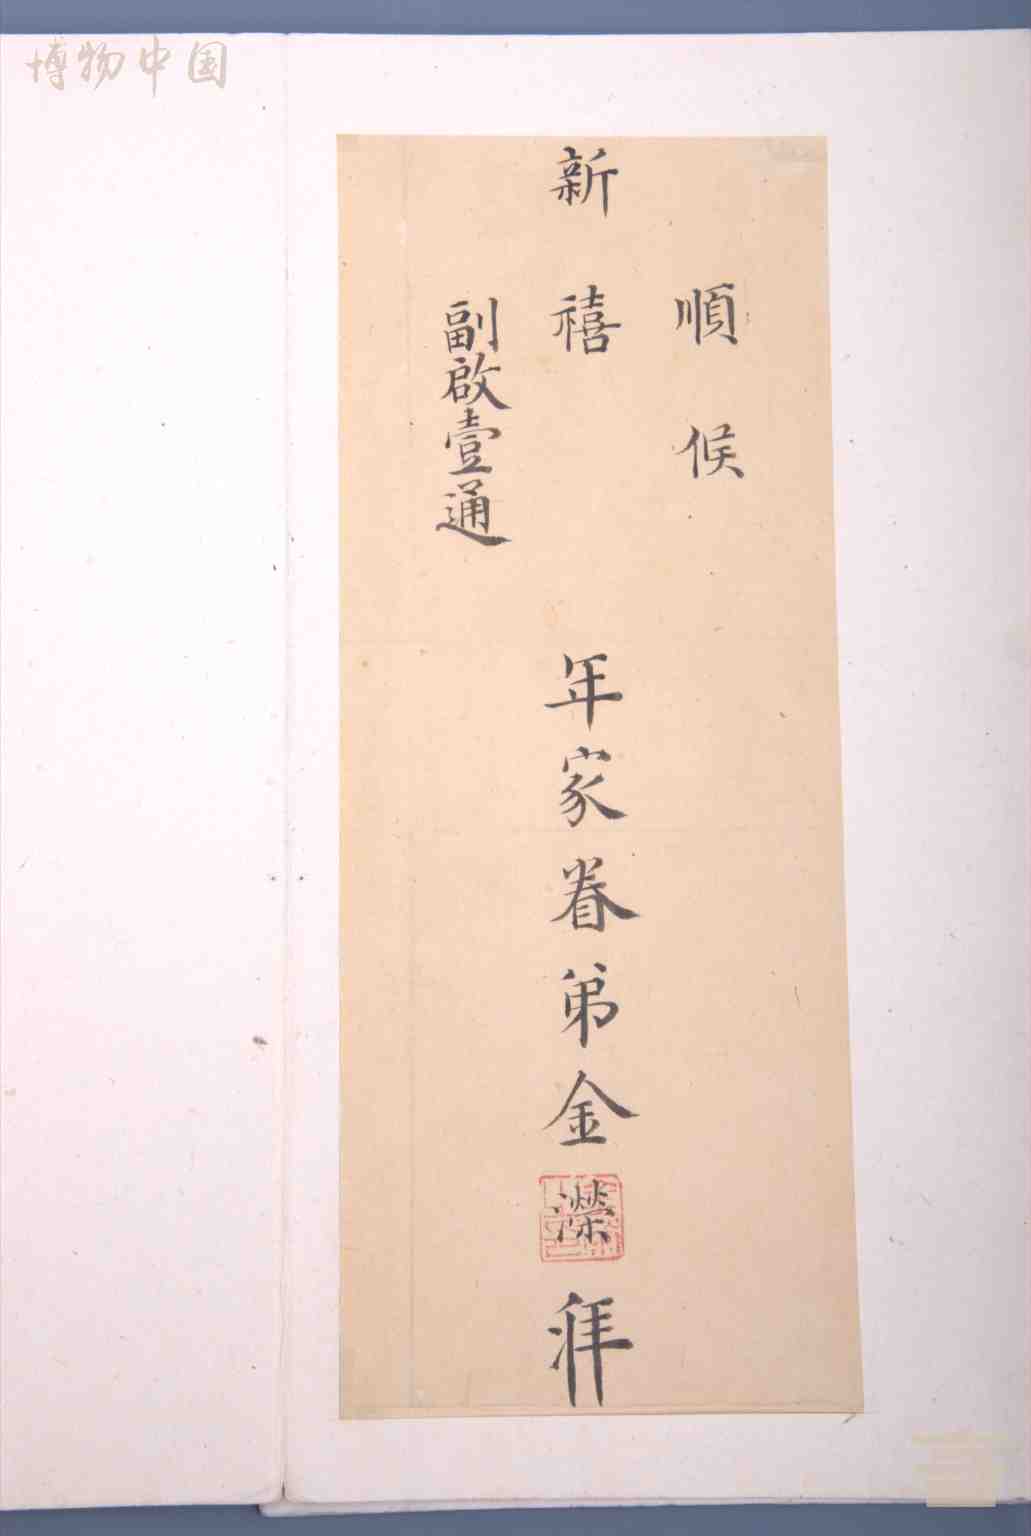 博物中国
順候
新禧
年家眷弟金濚拜
副啟壹通